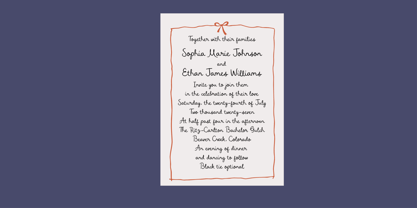 Together with their families
Sophia Marie Johnson
and
Ethan James Williams
Invite you to join them
in the celebration of their love
Saturday, the twenty-fourth of July
Two thousand twenty-seven
At half past four in the afternoon
The Ritz-Carlton, Bachelor Gulch
Beaver Creek, Colorado
An evening of dinner
and dancing to follow
Black tie optional